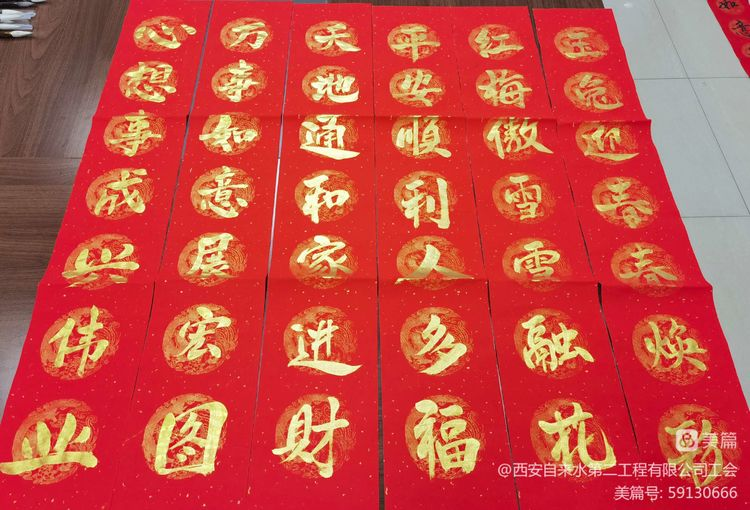 玉兔迎春春焕
红梅傲雪雪融花
平安順利人多福
天地通和家进财
万事如意展宏图
心想事成兴伟业
美篇
@西安自来水第二工程有限公司工会
美篇号: 59130666